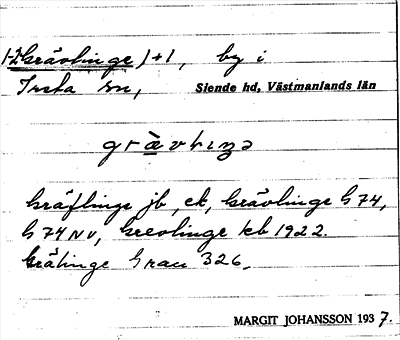 1-2 Grävlinge 1+1, by i
Irsta sn, Siende hd, Västmanlands län
græ̀vlıŋə
Gräflinge jb, ek, Grävlinge G 74,
G 74 NV, Grevlinge kb 1922.
Grälinge Grau 326.
MARGIT JOHANSSON 1937.